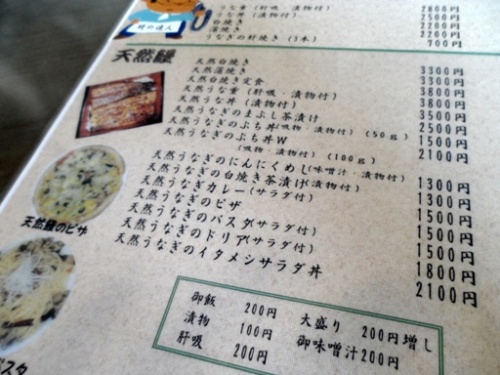 うな重(肝吸、漬物付) 2800円
うな丼(漬物付) 2500円
白焼き 2200円
蒲焼き 2200円
うなぎの肝焼き(3本) 700円
天然鰻
天然白焼き 3300円
天然蒲焼き 3300円
天然白焼き定食 3800円
天然うな重(肝吸・漬物付) 3800円
天然うな丼(漬物付) 3500円
天然うなぎのまぶし茶漬け 2500円
天然うなぎのぶち丼(吸物・漬物付)(50g) 1500円
天然うなぎのぶち丼W 2100円
(吸物・漬物付)(100g)
天然うなぎのにんにくめし(味噌汁・漬物付) 1300円
天然うなぎの白焼き茶漬け(漬物付) 1300円
天然うなぎカレー(サラダ付) 1500円
天然うなぎのピザ 1500円
天然うなぎのパスタ(サラダ付) 1500円
天然うなぎのドリア(サラダ付) 1800円
天然うなぎのイタメシサラダ丼 2100円
天然鰻のピザ
パスタ
御飯 200円 大盛り 200円増し
漬物 100円 御味噌汁200円
肝吸 200円